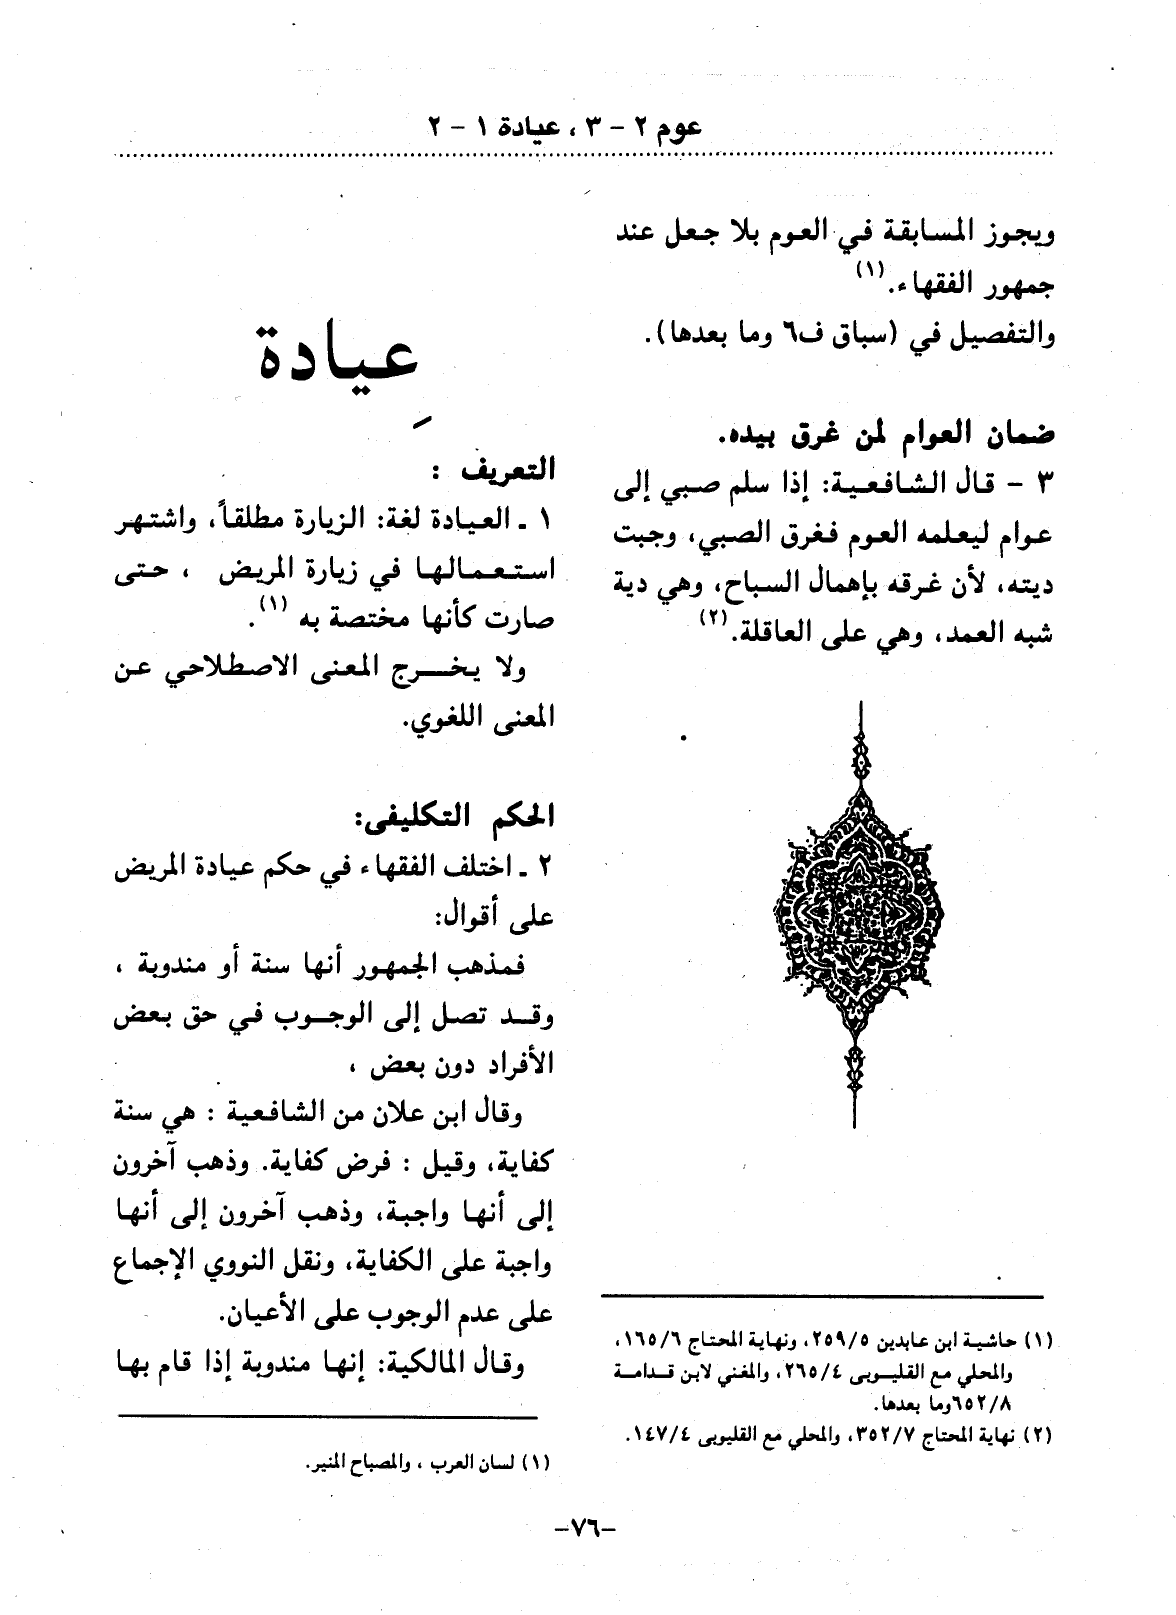 عوم ٢ – ٣ ، عيادة ١ – ٢
ويجوز المسابقة في العوم بلا جعل عند
جمهور الفقهاء.(١)
والتفصيل في (سباق ف٦ وما بعدها).
ضمان العوام لمن غرق بيده.
٣ – قال الشافعية: إذا سلم صبي إلى
عوام ليعلمه العوم فغرق الصبي، وجبت
ديته، لأن غرقه بإهمال السباح، وهي دية
شبه العمد، وهي على العاقلة.(٢)
(١) حاشية ابن عابدين ٢٥٩/٥، ونهاية المحتاج ١٦٥/٦،
والمحلي مع القليوبى ٢٦٥/٤، والمغني لابن قدامة
٦٥٢/٨وما بعدها.
(٢) نهاية المحتاج ٣٥٢/٧، والمحلي مع القليوبى ١٤٧/٤.
عيادة
التعريف :
١ ـ العيادة لغة: الزيارة مطلقاً، واشتهر
استعمالها في زيارة المريض ، حتى
صارت كأنها مختصة به (١).
ولا يخرج المعنى الاصطلاحي عن
المعنى اللغوي.
الحكم التكليفى:
٢ ـ اختلف الفقهاء في حكم عيادة المريض
على أقوال:
فمذهب الجمهور أنها سنة أو مندوبة ،
وقد تصل إلى الوجوب في حق بعض
الأفراد دون بعض ،
وقال ابن علان من الشافعية : هي سنة
كفاية، وقيل : فرض كفاية. وذهب آخرون
إلى أنها واجبة، وذهب آخرون إلى أنها
واجبة على الكفاية، ونقل النووي الإجماع
على عدم الوجوب على الأعيان.
وقال المالكية: إنها مندوبة إذا قام بها
(١) لسان العرب ، والمصباح المنير.
–٧٦–